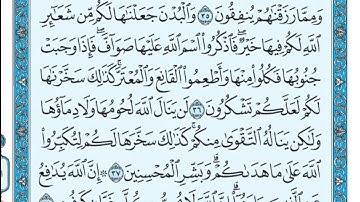 وَمِمَّا رَزَقْنَٰهُمْ يُنفِقُونَ ٣٥ وَٱلْبُدْنَ جَعَلْنَٰهَا لَكُم مِّن شَعَٰٓئِرِ
ٱللَّهِ لَكُمْ فِيهَا خَيْرٌ فَٱذْكُرُوا۟ ٱسْمَ ٱللَّهِ عَلَيْهَا صَوَآفَّ فَإِذَا وَجَبَتْ
جُنُوبُهَا فَكُلُوا۟ مِنْهَا وَأَطْعِمُوا۟ ٱلْقَانِعَ وَٱلْمُعْتَرَّ كَذَٰلِكَ سَخَّرْنَٰهَا
لَكُمْ لَعَلَّكُمْ تَشْكُرُونَ ٣٦ لَن يَنَالَ ٱللَّهَ لُحُومُهَا وَلَا دِمَآؤُهَا
وَلَٰكِن يَنَالُهُ ٱلتَّقْوَىٰ مِنكُمْ كَذَٰلِكَ سَخَّرَهَا لَكُمْ لِتُكَبِّرُوا۟
ٱللَّهَ عَلَىٰ مَا هَدَىٰكُمْ وَبَشِّرِ ٱلْمُحْسِنِينَ ٣٧ ۞ إِنَّ ٱللَّهَ يُدَٰفِعُ